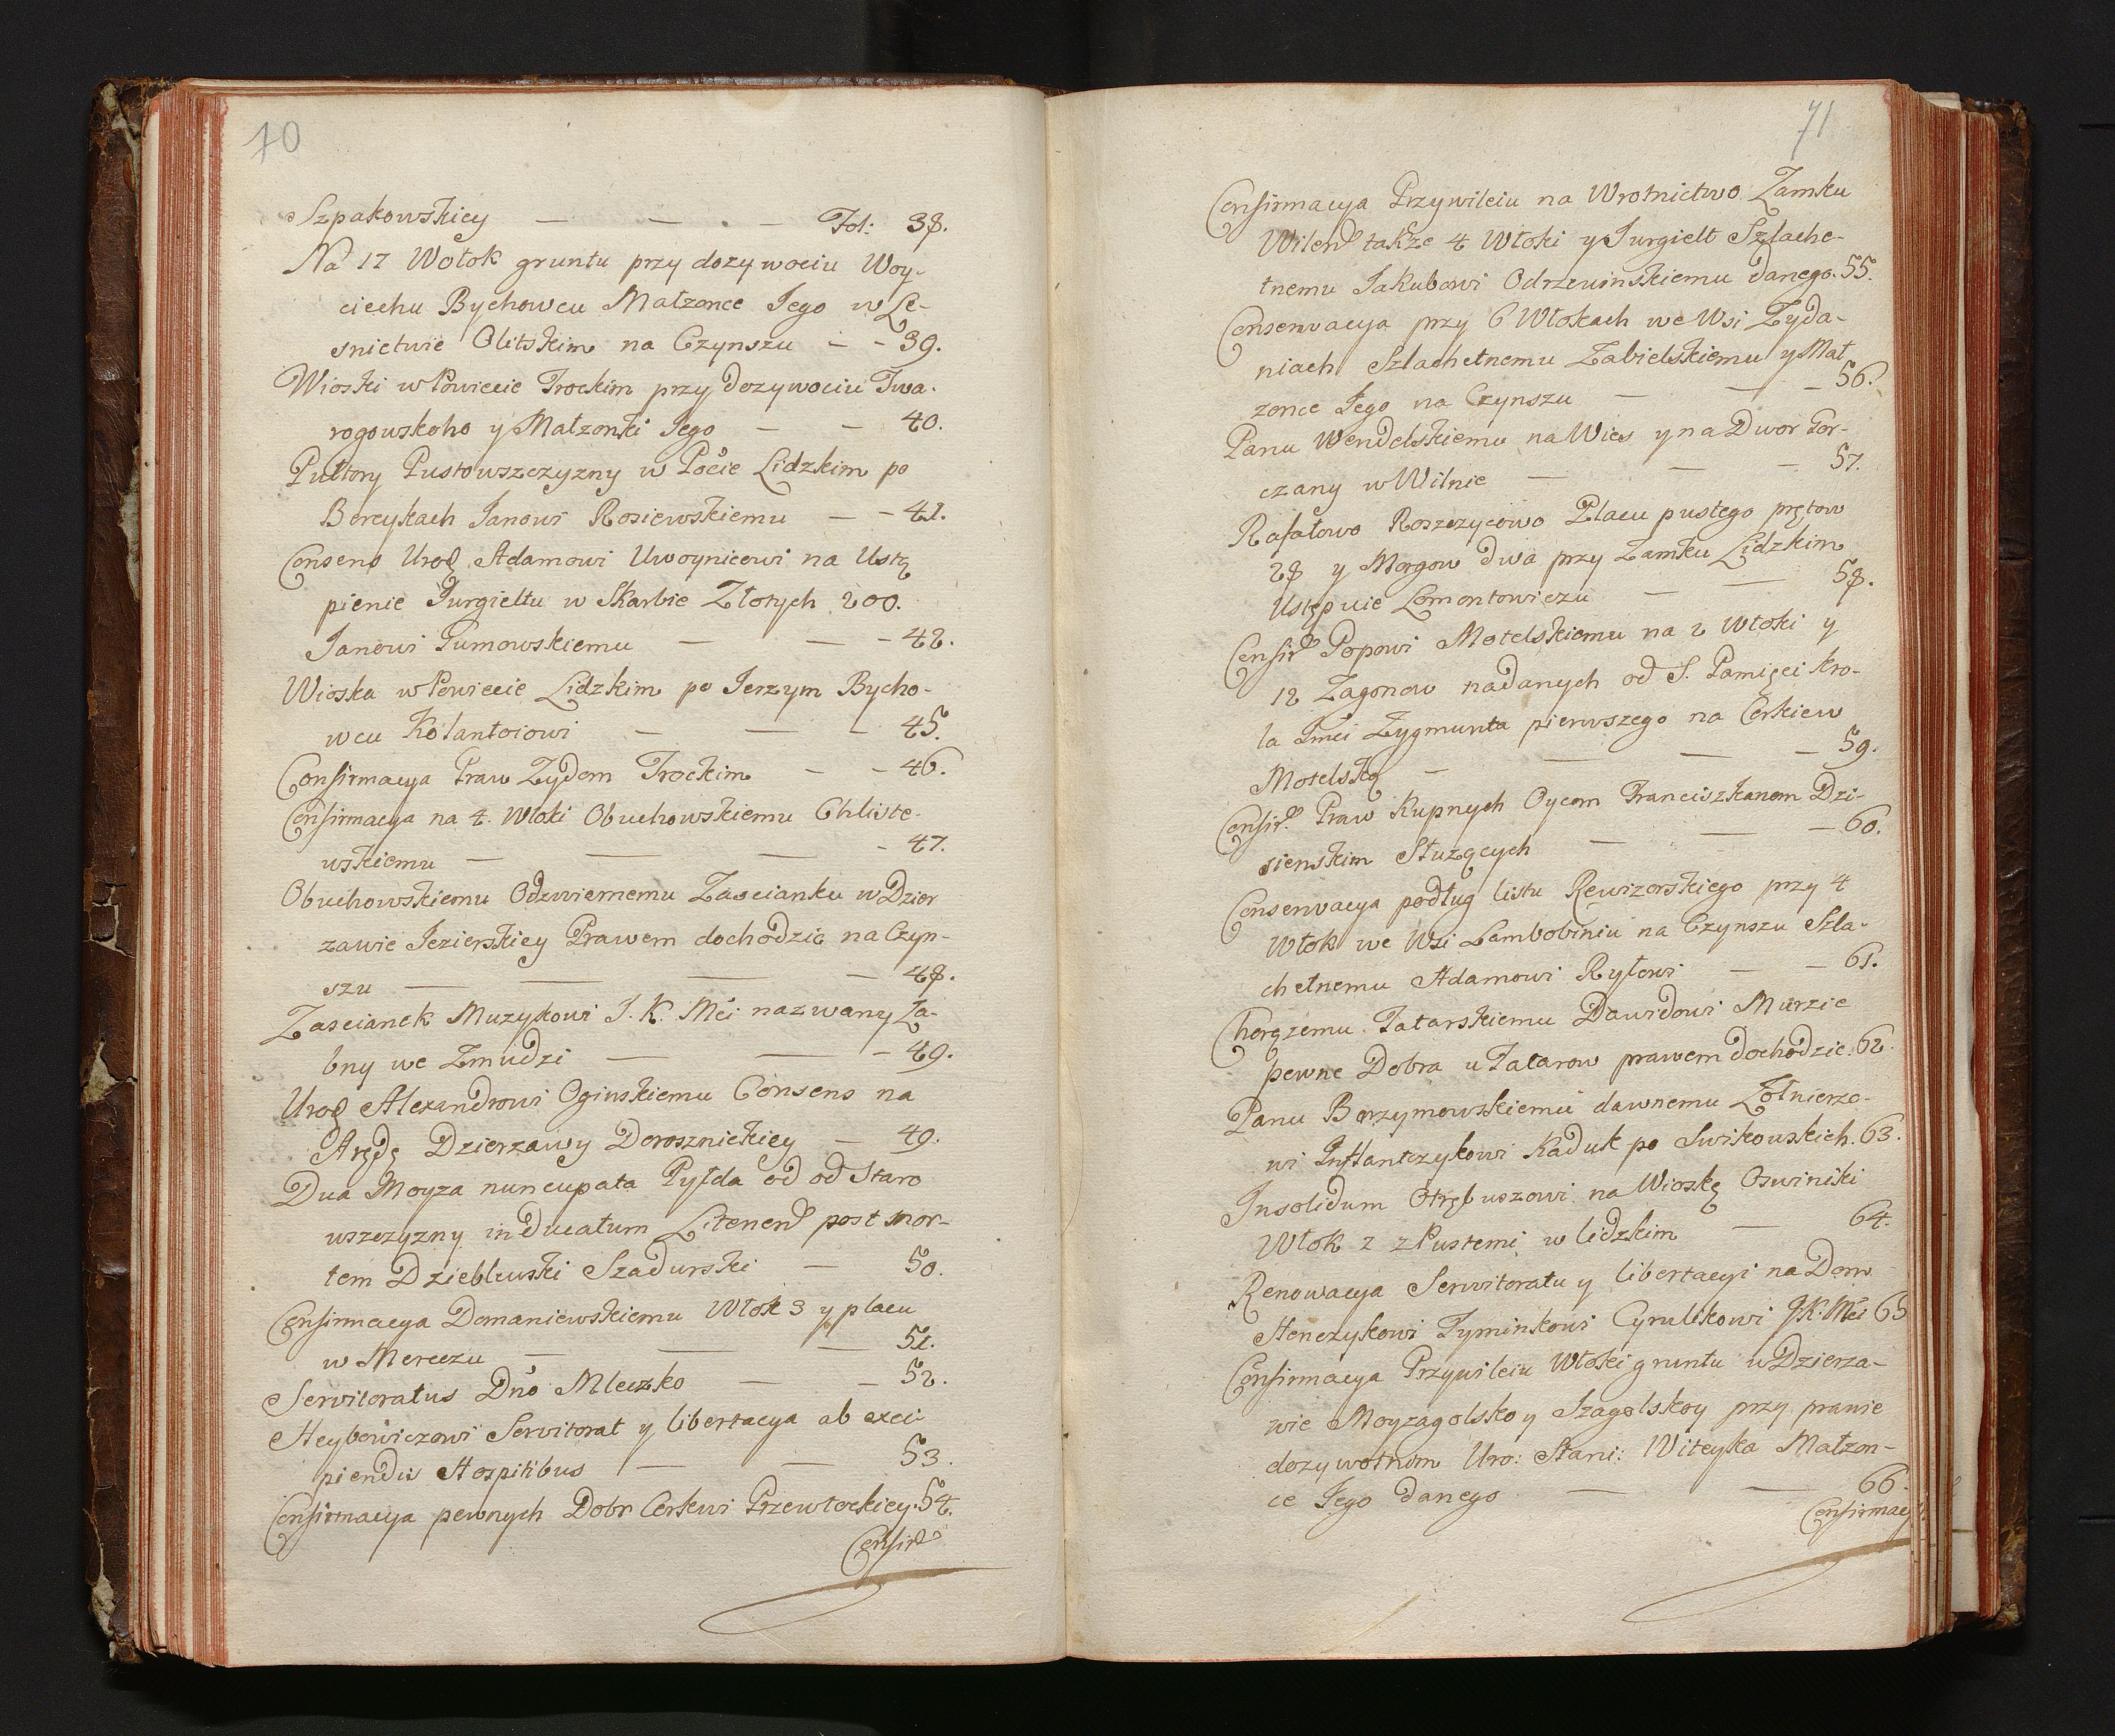 70
Szpakowskiey — — — Fol: 38.
Na 17 Wołok gruntu przy dozywociu Woy-
ciechu Bychowcu Małzonce Jego w Le-
snictwie Olitskim na Czynszu — — 39.
Wioski w Powiecie Trockim przy dozywociu Twa-
rogowskoho y Małzonki Jego — — 40.
Pułtory Pustowszczyzny w Pocie Lidzkim po
Boreykach Janowi Rosiewskiemu — — 41.
Consens Urod Adamowi Uwoynicowi na Ustą
pienie Jurgieltu w Skarbie Złotych 200.
Janowi Tumowskiemu — — — 42.
Wioska w Powiecie Lidzkim po Jerzym Bycho-
wcu Kołantoiowi — — — 45.
Confirmacya Praw Zydom Trockim — — 46.
Confirmacya na 4. Włoki Obuchowskiemu Chliste-
wskiemu — — — — 47.
Obuchowskiemu Odzwiernemu Zascianku w Dzier
zawie Jezierskiey Prawem dochodzic na Czyn-
szu — — — — 48.
Zascianek Muzykowi J. K. Mći nazwany Ła-
bny we Zmudzi — — — 49.
Urod Alexandrowi Oginskiemu Consens na
Arędę Dzierzawy Dorosznickiey — 49.
Dua Moyza nuncupata Pyłda od od Staro
uszczyzny in Ducatum Litenen post mor-
tem Dzieblewski Szadurski — 50.
Confirmacya Domaniewskiemu Włok 3 y placu
w Mereczu — — — 51.
Servitoratus Dno Mleczko — — 52.
Heybowiczowi Servitorat y libertacya ab exci
piendis Hospitibus — — 53.
Confirmacya pewnych Dobr Cerkwi Przewłockiey. 54.
Confir
71
Confirmacya Przywileiu na Wrotnictwo Zamku
Wilen także 4 Włoki y Jurgielt Szlache-
tnemu Jakubowi Odrzewinskiemu danego. 55.
Conservacya przy 6 Włokach we Wsi Zyda-
niach Szlachetnemu Zabielskiemu y Mał
zonce Jego na Czynszu — — — 56.
Panu Wendelskiemu na Wies y na Dwor Gor-
czany w Wilnie — — — 57.
Rafałowo Roszczycowo Placu pustego prętow
28 y Morgow dwa przy Zamku Lidzkim
Ustępuie Lomontowiczu — — 58.
Confir Popowi Motelskiemu na 2 Włoki y
12 Zagonow nadanych od S. Pamięci Kro-
la Jmći Zygmunta pierwszego na Cerkiew
Motelską — — — — 59.
Confir. Praw Kupnych Oycom Franciszkanom Dzi-
sienskim Służących — — — 60.
Conservacya podług listu Rewizorskiego przy 4
Włok we Wsi Lambobiniu na Czynszu Szla-
chetnemu Adamowi Ryłowi — — 61.
Chorązemu Tatarskiemu Dawidowi Murzie
pewne Dobra u Tatarow prawem dochodzic. 62.
Panu Borzymowskiemu dawnemu Zołnierzo-
wi Inflantczykowi Kaduk po Swikowskich. 63.
Insolidum Otrębuszowi na Wioskę Oswiniski
Włok 2 z Pustemi w lidzkim — 64.
Renowacya Servitoratu y libertacyi na Dom
Henczykowi Tyminkowi Cyrulikowi J K. Mći 65
Confirmacya Przywileiu Włoki gruntu w Dzierza-
wie Moyzagolskoy Szagolskoy przy prawie
dozywotnim Uro: Stani: Witeyka Małzon-
ce Jego danego — — 66.
Confirmacy